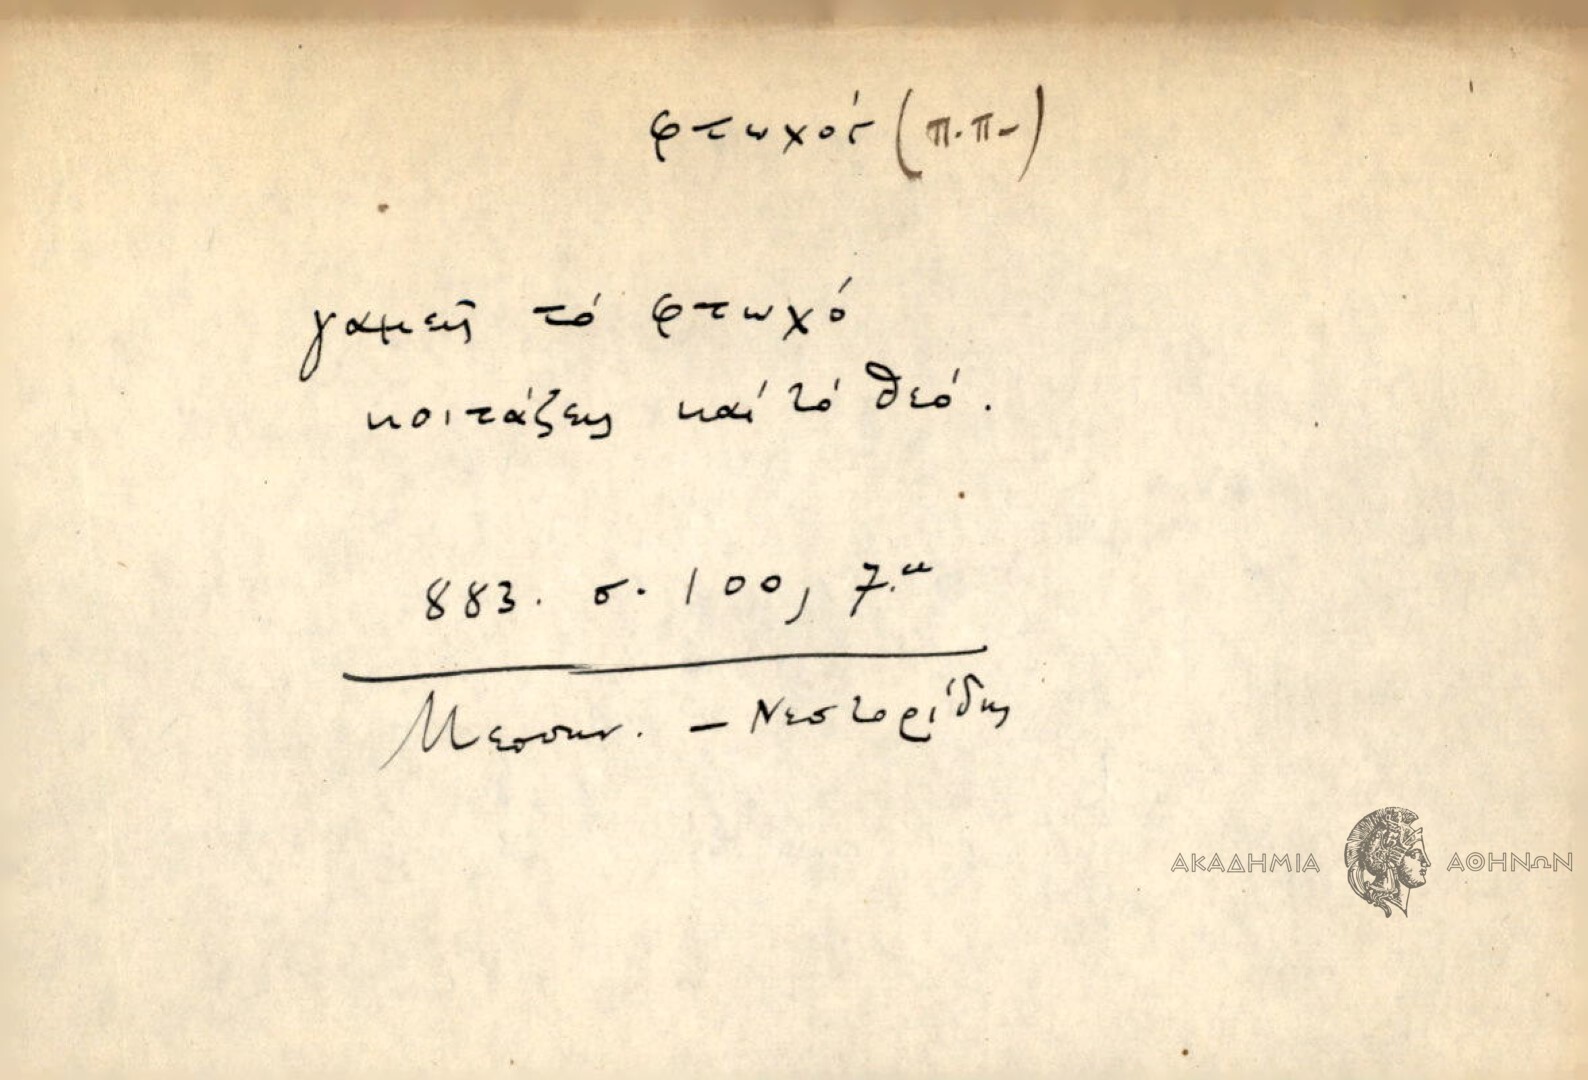 φτωχός (π.π.)
γαμεῖς τό φτωχό
κοιτάζεις καί τό θεό.
883. σ. 100, 7.
Μεσσην. – Νεστορίδης
ΑΚΑΔΗΜΙΑ ΑΘΗΝΩΝ